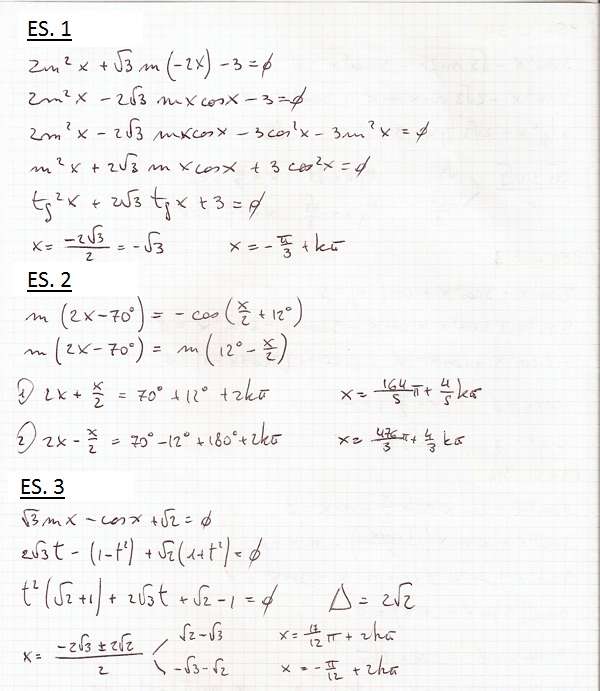 ES. 1
2m²x + √3 m(-2x) - 3 = ϕ
2m²x - 2√3 mxcosx - 3 = ϕ
2m²x - 2√3 mxcosx - 3cos²x - 3m²x = ϕ
m²x + 2√3 mxcosx + 3cos²x = ϕ
tg²x + 2√3 tgx + 3 = ϕ
x = -2√3/2 = -√3 x = -π/3 + kπ
ES. 2
m(2x-70°) = -cos(x/2 + 12°)
m(2x-70°) = m(12° - x/2)
1) 2x + x/2 = 70° + 12° + 2kπ x = 164/5 π + 4/5 kπ
2) 2x - x/2 = 70° - 12° + 180° + 2kπ x = 476/3 π + 4/3 kπ
ES. 3
√3 mx - cosx + √2 = ϕ
2√3t - (1-t²) + √2(1+t²) = ϕ
t²(√2+1) + 2√3t + √2 - 1 = ϕ Δ = 2√2
x = (-2√3 ± 2√2)/2 √2-√3 x = 17/12 π + 2kπ
-√3-√2 x = -π/12 + 2kπ